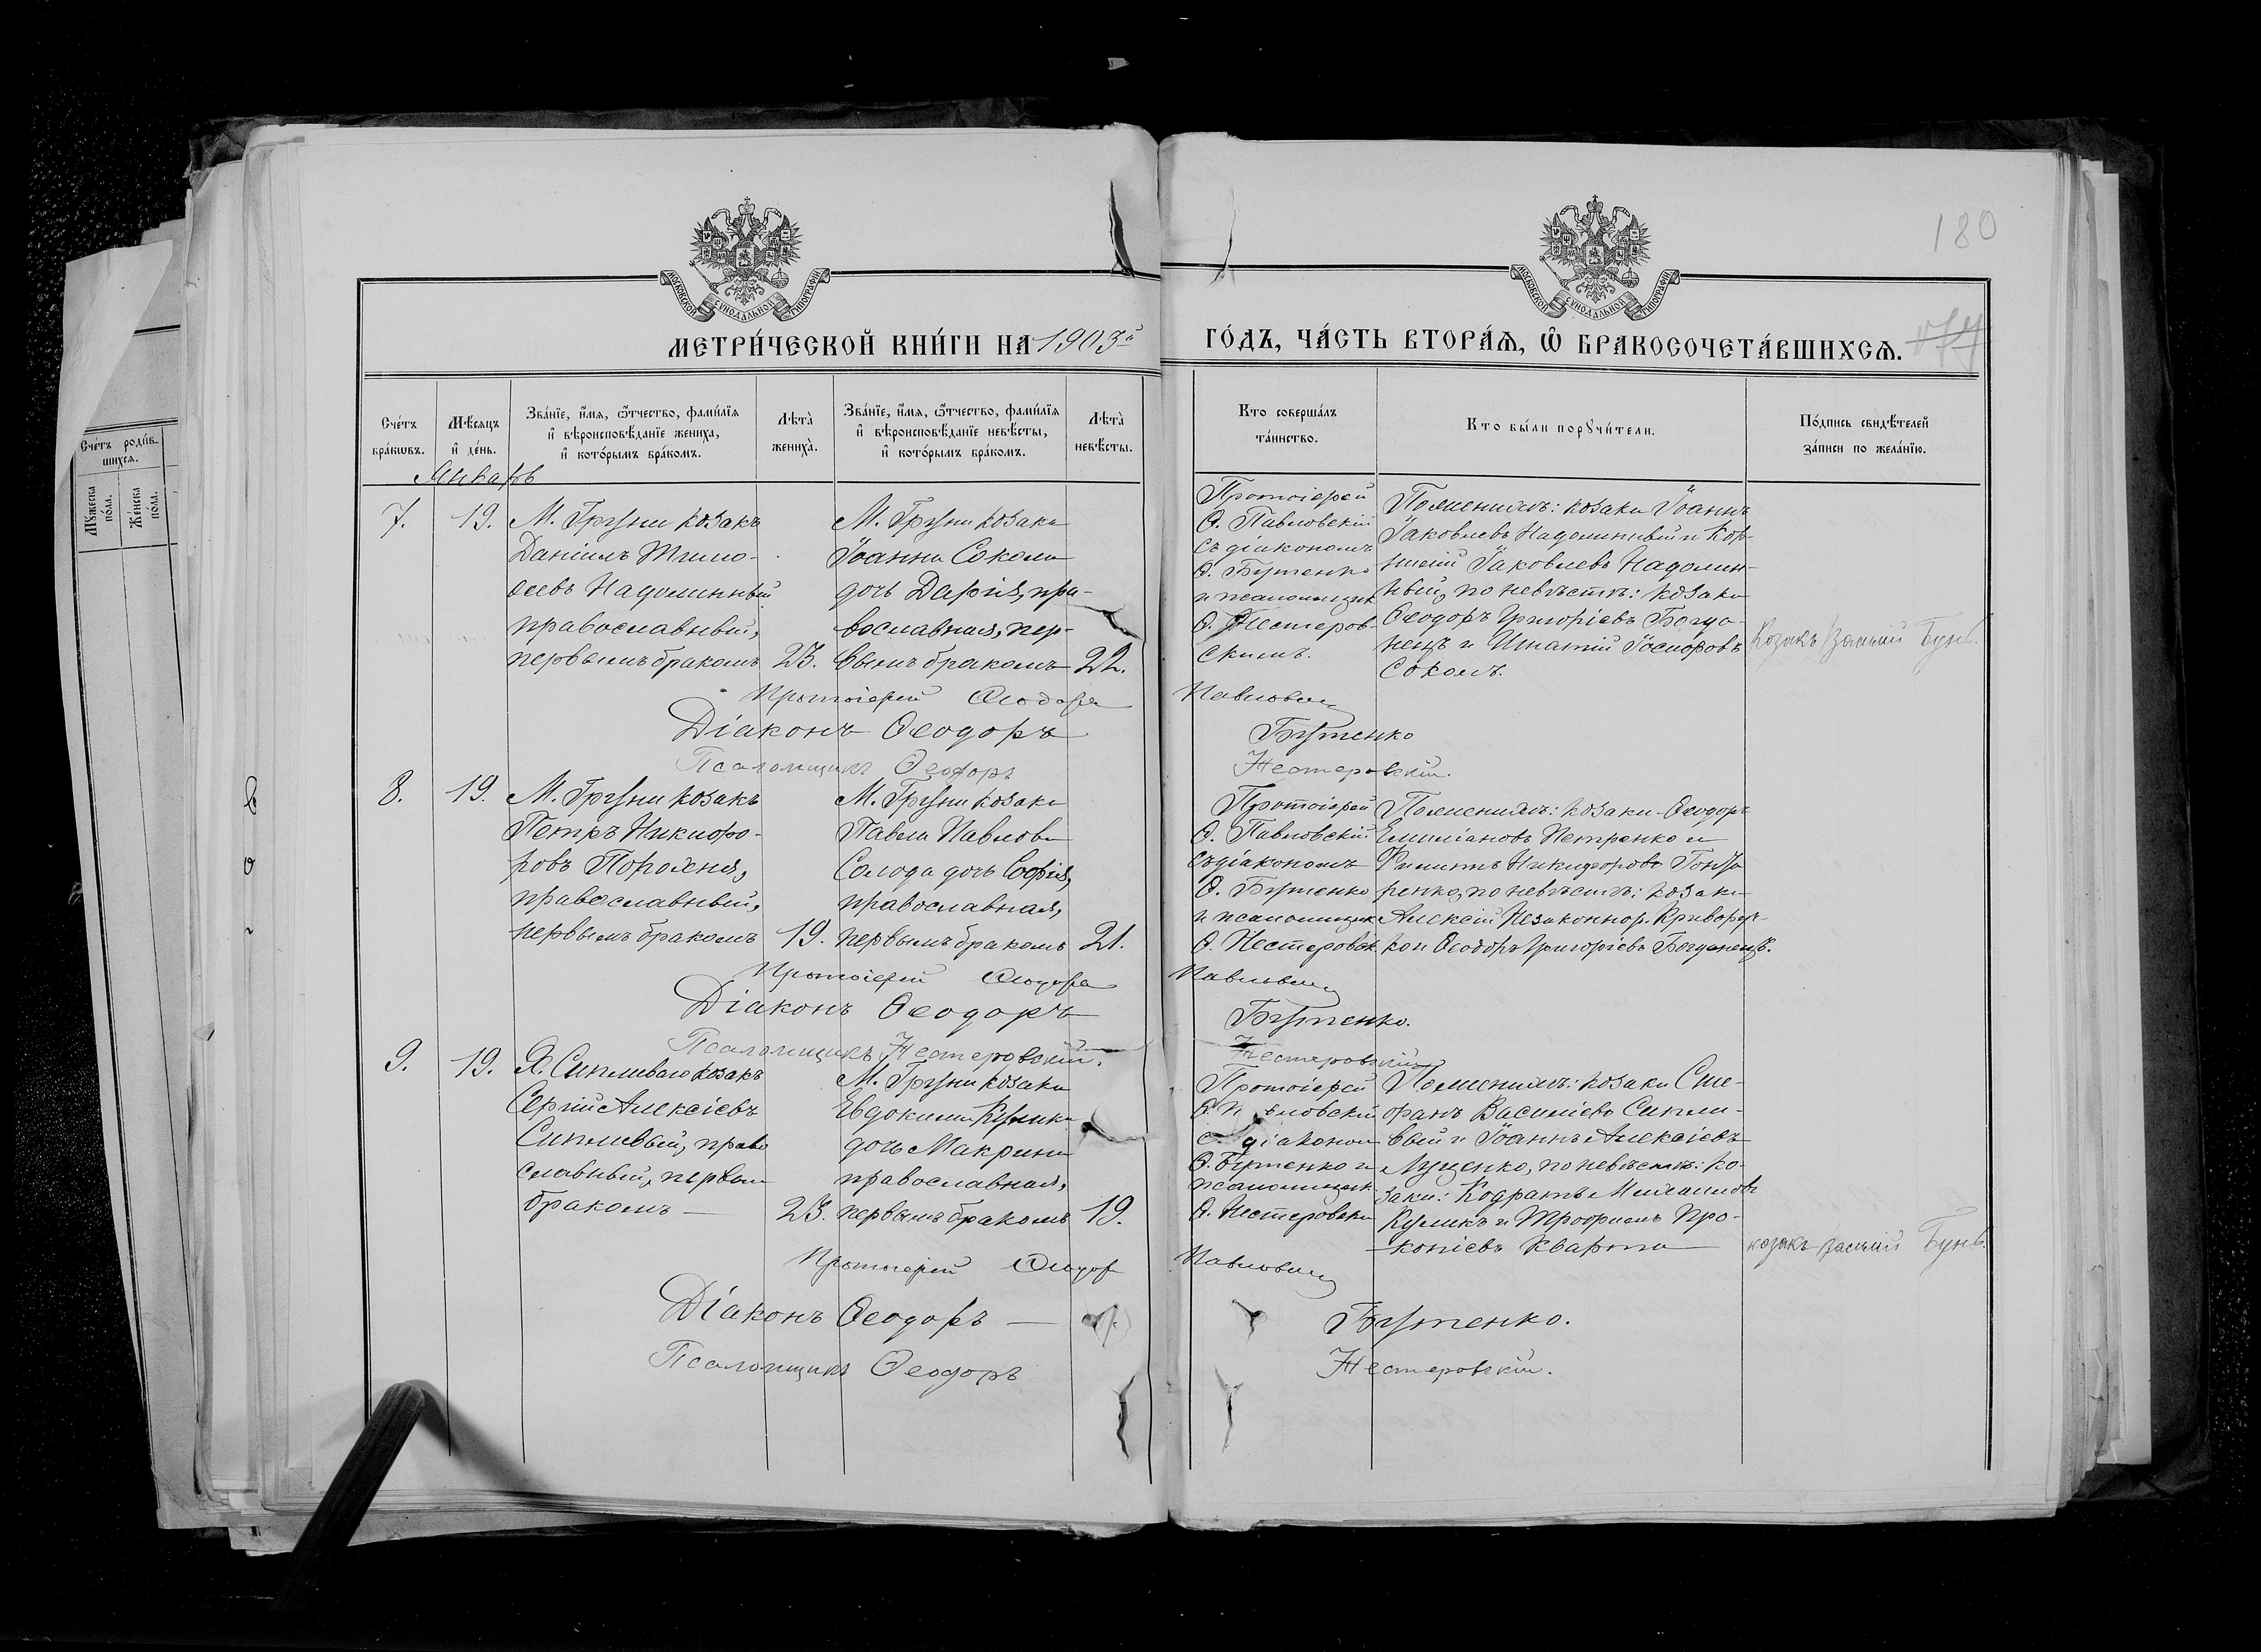 180
МЕТРИ́ЧЕСКОЙ КНИ́ГИ НА 1903й ГО́ДЪ, ЧА́СТЬ ВТОРА́Ѧ, Ѽ БРАКОСОЧЕТА́ВШИХСѦ.
МОСКОВСКОЙ СѴНОДАЛЬНОЙ ТИПОГРАФІИ
МОСКОВСКОЙ СѴНОДАЛЬНОЙ ТИПОГРАФІИ
Сче́тъ роди́в-
шихсѧ.
Мꙋ́жеска
по́ла.
Же́нска
по́ла.
Сче́тъ
бра́кѡвъ.
Мѣ́сяцъ
и҆ де́нь.
Зва́нїе, и҆́мѧ, ѻ҆́тчество, фами́лїѧ
и҆ вѣроисповѣ́данїе жениха̀,
и҆ кото́рымъ бра́комъ.
Лѣ́та
жениха̀.
Зва́нїе, и҆́мѧ, ѻ҆́тчество, фами́лїѧ
и҆ вѣроисповѣ́данїе невѣ́сты,
и҆ кото́рымъ бра́комъ.
Лѣ́та
невѣ́сты.
Кто соверша́лъ
та́инство.
Кто бы́ли порꙋчи́тели.
По́дпись свидѣ́телей
за́писи по жела́нїю.
Январь
7.
19.
М. Груни козакъ
Даніилъ Тимо-
ѳеевъ Надолинный
православный,
первымъ бракомъ
23.
М. Груни козака
Іоанна Сокола
дочь Дарія, пра-
вославная, пер-
вымъ бракомъ
22.
Протоіерей
Ѳ. Павловскій
съ діакономъ
Ѳ. Бутенко
и псаломщик
Ѳ. Нестеров-
скимъ.
По женихѣ: козаки Іоаннъ
Іаковлевъ Надолинный и Кор-
нилій Іаковлевъ Надолин-
ный, по невѣстѣ: козаки
Ѳеодоръ Григоріевъ Богда-
нецъ и Игнатій
Соколъ.
Козакъ
Протоіерей Ѳеодоръ Павловскій
Діаконъ Ѳеодоръ Бутенко
Псаломщикъ Ѳеодоръ Нестеровскій.
8.
19.
М. Груни козакъ
Петръ Никифо-
ровъ Порохня,
православный,
первымъ бракомъ
19.
М. Груни козака
Павла Павлова
Солода дочь Софія,
православная,
первымъ бракомъ
21.
Протоіерей
Ѳ. Павловскій
съ діакономъ
Ѳ. Бутенко
и псаломщик
Ѳ. Нестеровск
По женихѣ: козаки Ѳеодоръ
Емиліановъ Петренко и
Филиппъ Никифоровъ Гонча
ренко, по невѣстѣ: козаки
Алексій Незаконнор. Криворуч-
ко и Ѳеодоръ Григоріевъ Богданецъ.
Протоіерей Ѳеодоръ Павловскій
Діаконъ Ѳеодоръ Бутенко.
Псаломщикъ Нестеровскій.
Нестеровскій
9.
19.
Х. Сипливаго козакъ
Сергій Алексіевъ
Сипливый, право
славный, первым
бракомъ
23.
М. Груни козака
Евдокима Кулика
дочь Макрина
православная,
первымъ бракомъ
19.
Протоіерей
Ѳ. Павловскій
съ діаконом
Ѳ. Бутенко и
псаломщик
Ѳ. Нестеровски
По женихѣ: козаки Сте-
фанъ Василіевъ Сипли-
вый и Іоаннъ Алексіевъ
Луценко, по невѣстѣ: ко-
заки: Кодратъ Михаиловъ
Куликъ и Трофимъ Про-
копіевъ Кварта
козакъ
Протоіерей Ѳеодоръ Павловскій
Діаконъ Ѳеодоръ Бутенко.
Псаломщикъ Ѳеодоръ Нестеровскій.